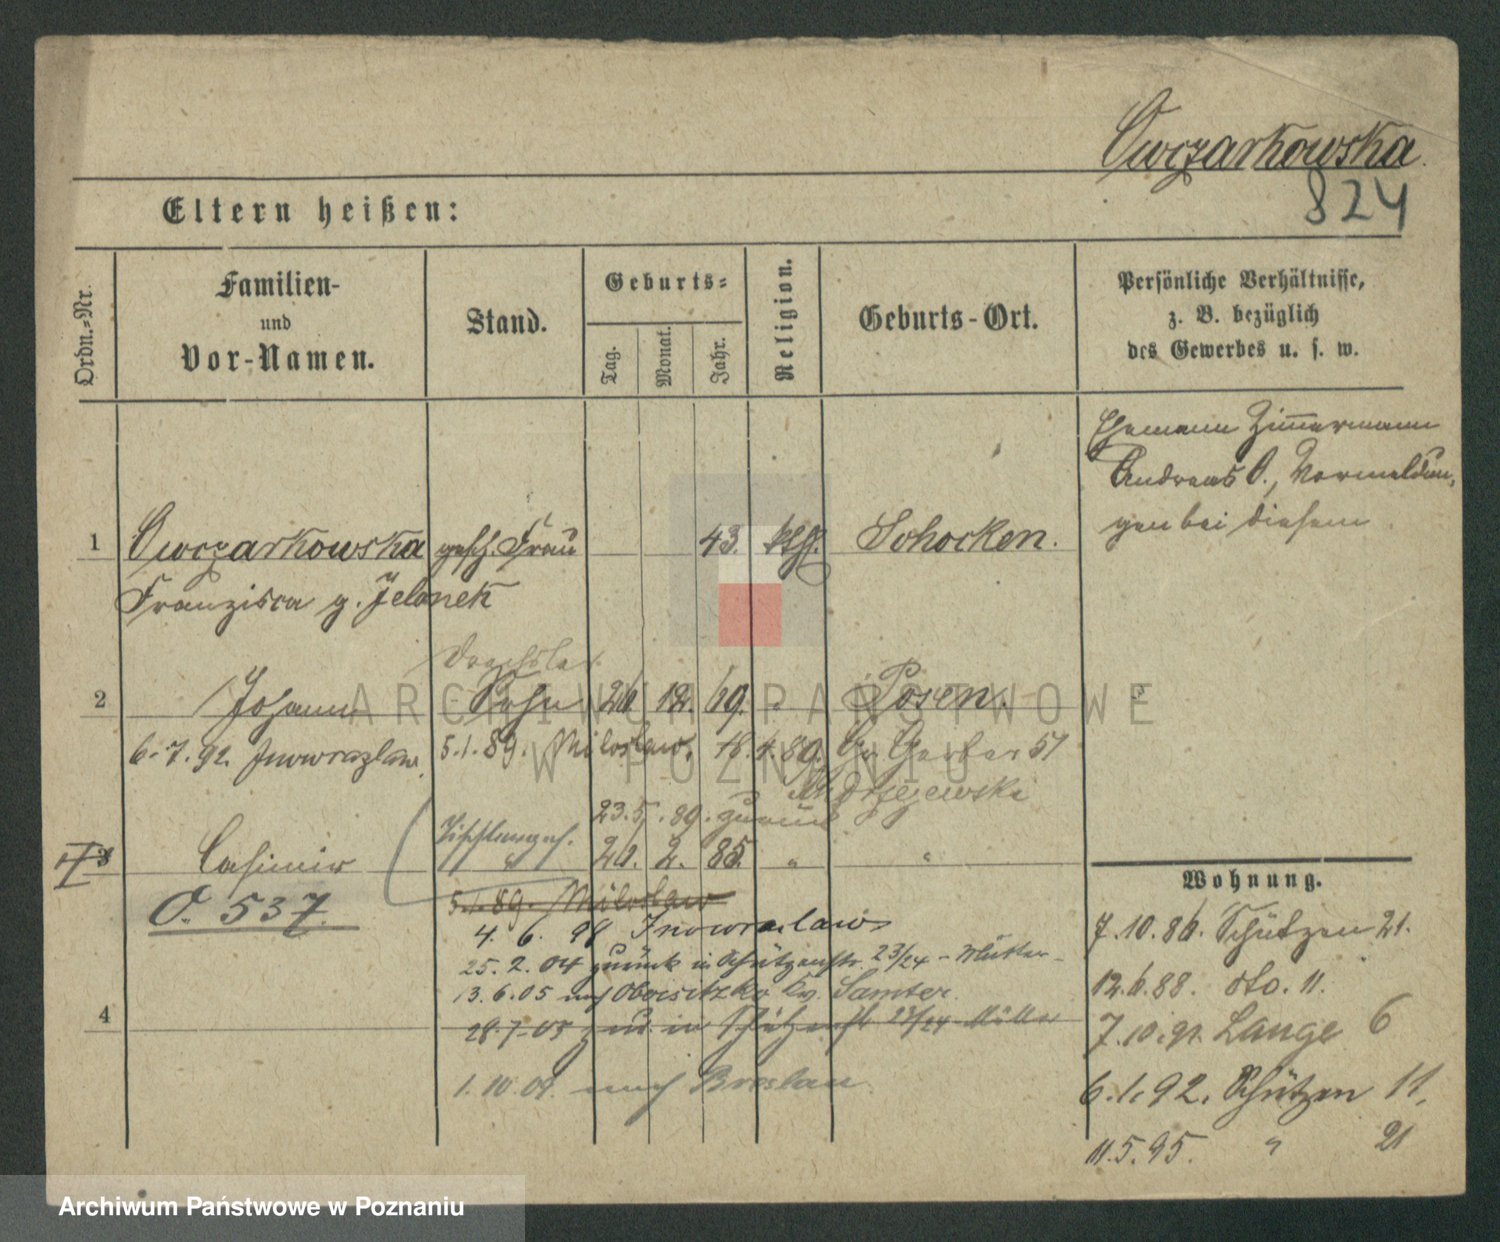 Owczarkowska.
824
Eltern heißen:
Ordn.-Nr.
Familien-
und
Vor-Namen.
Stand.
Geburts-
Tag.
Monat.
Jahr.
Religion.
Geburts-Ort.
Persönliche Verhältnisse,
z. B. bezüglich
des Gewerbes u. s. w.
Ehemann Zimmermann
Andreas O., Vormeldun-
gen bei diesem
1 Owczarkowska gesch. Frau 43. kth. Schocken.
Franzisca g. Jelonek
2 Johann Sohn 26 12. 69. Posen.
6.7.92. Inowrazlaw. 5.1.89. Miloslaw. 18.4.89. Gr. Gerber 51
Andrzejewska
23.5.89. zurück
3 Casimir 20. 2. 85. " "
O. 537.
5.1.89. Miloslaw
4. 6. 98 Inowraclaw
25. 2. 04 zurück in Schützenstr. 23/24 - Mutter -
13. 6. 05 nach Obersitzko Kr. Samter.
4
28.7.05 zur. in Schützenstr 23/24 Mutter
1. 10. 09. nach Breslau
Wohnung.
7.10.86. Schützen 21.
12.6.88. dto. 11.
7.10.91. Lange 6
6.1.92. Schützen 11.
11.5.95. " 21
ARCHIWUM PAŃSTWOWE
W POZNANIU
Archiwum Państwowe w Poznaniu